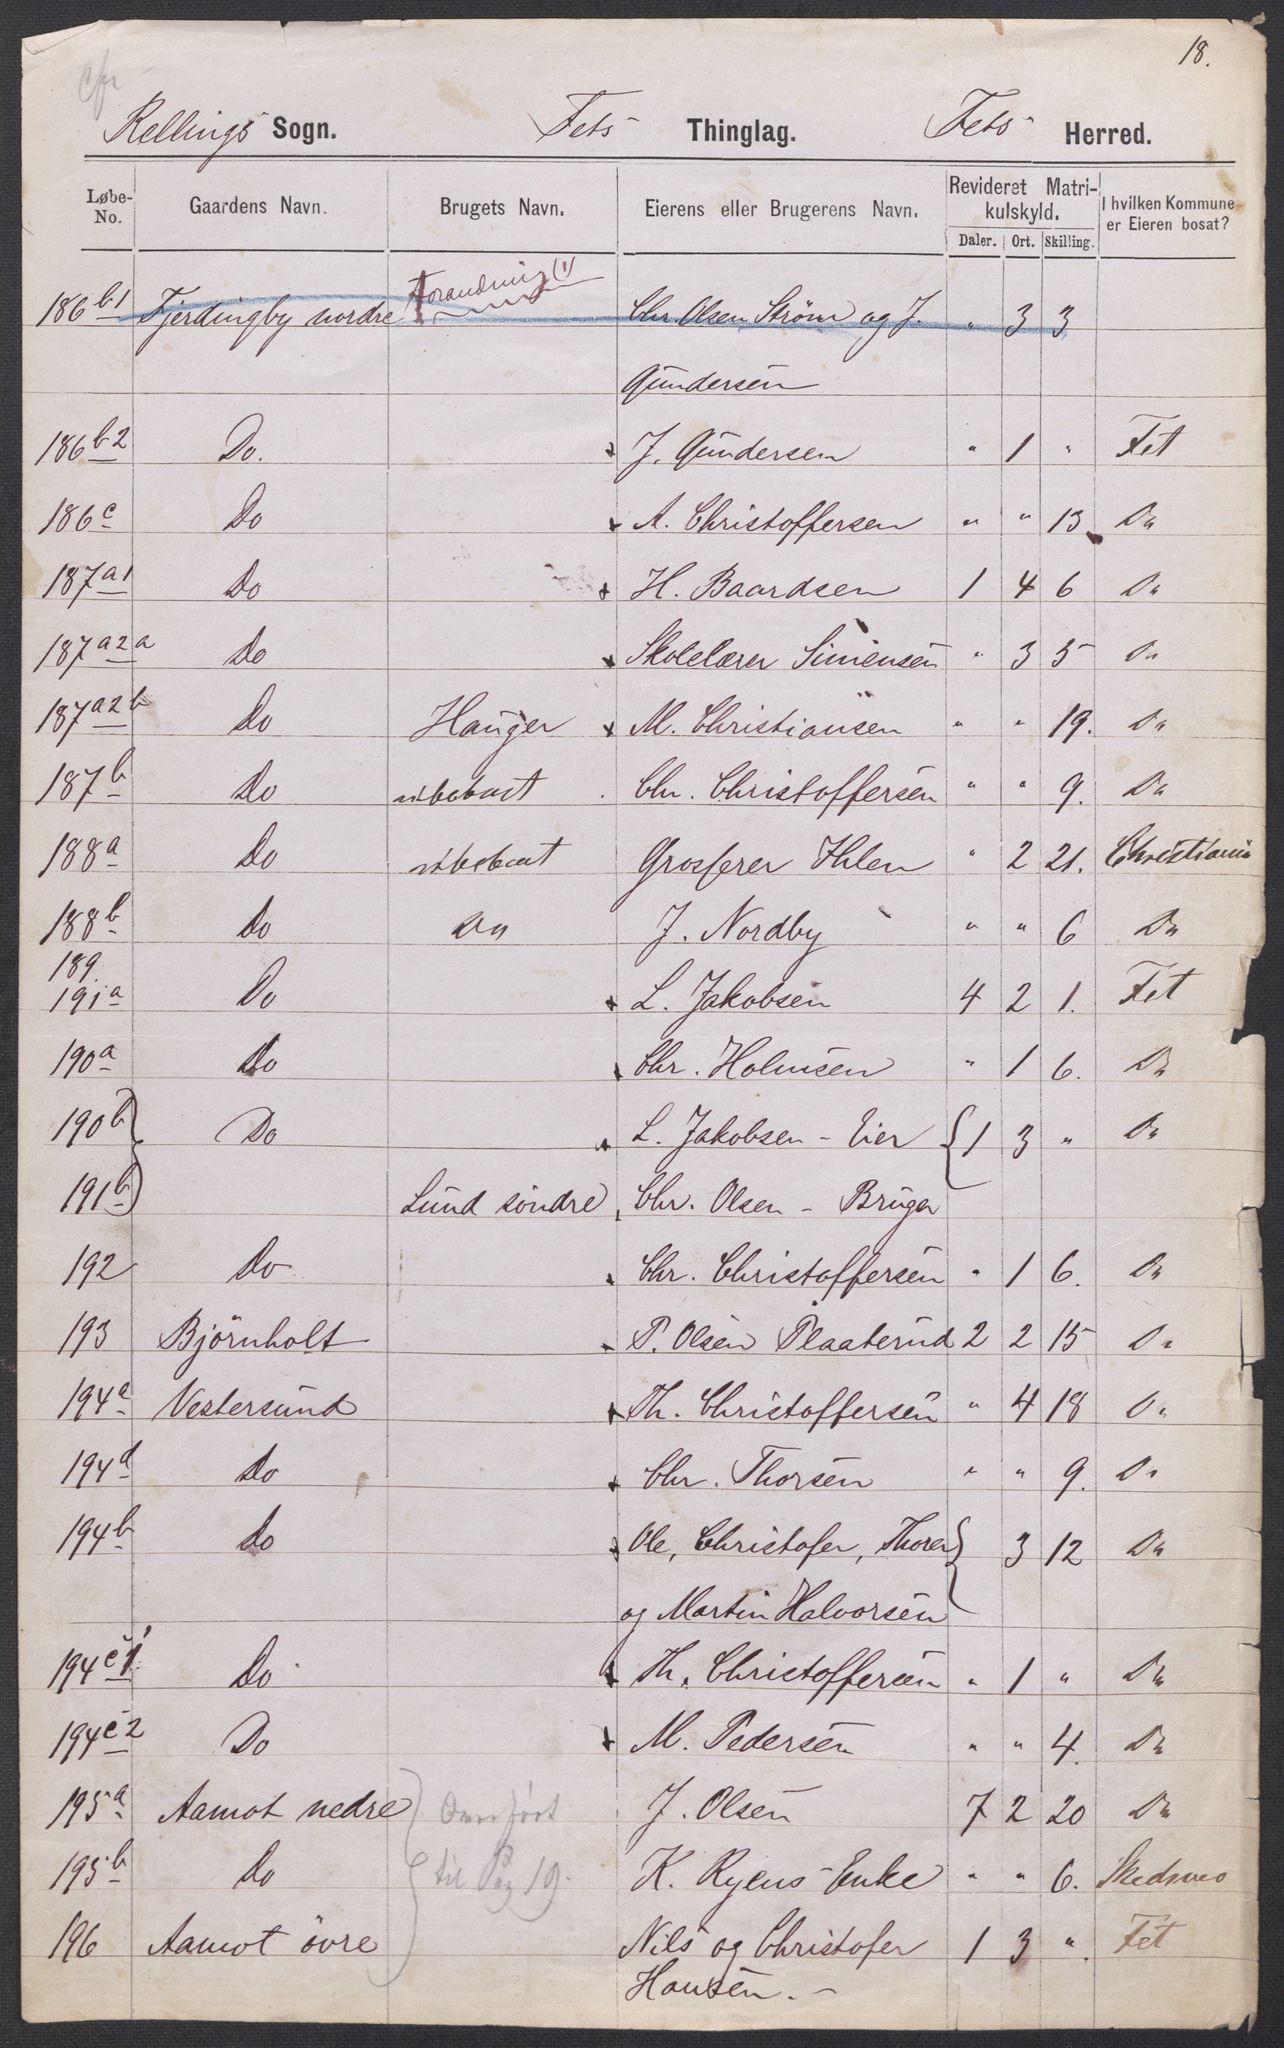 18.
cfr
Rellings Sogn. Fets Thinglag. Fets Herred.
Løbe-No. Gaardens Navn. Brugets Navn. Eierens eller Brugerens Navn. Revideret Matrikulskyld. Daler. Ort. Skilling. I hvilken Kommune er Eieren bosat?
Forandring (1)
186 b1 Fjerdingby nordre Chr. Olsen Strøm og J. " 3 3
Gundersen
186 b2 Do. J. Gundersen " 1 " Fet
186 c Do A. Christoffersen " " 13 Do
187 a1 Do H. Baardsen 1 4 6 Do
187 a2a Do Skolelærer Simensen " 3 5 Do
187 a2b Do Hauger M. Christiansen " " 19. Do
187 b Do ubeboet Chr. Christoffersen " " 9. Do
188 a Do ubeboet Grosserer Ihlen " 2 21. Christiania
188 b Do Do J. Nordby " " 6 Do
189
191 a Do L. Jakobsen 4 2 1. Fet
190 a Do Chr. Holmsen " 1 6. Do
190 b Do L. Jakobsen - Eier 1 3 " Do
191 b Lund söndre Chr. Olsen - Bruger
192 Do Chr. Christoffersen " 1 6. Do
193 Björnholt P. Olsen Plaaterud 2 2 15 Do
194 a Vestersund Th. Christoffersen " 4 18 Do
194 d Do Chr. Thorsen " " 9. Do
194 b Do Ole, Christofer, Thorer 3 12 Do
og Martin Halvorsen
194 c1 Do Th. Christoffersen " 1 " Do
194 c2 Do M. Pedersen " " 4. Do
195 a Aamot nedre Overført J. Olsen 7 2 20 Do
195 b Do til Pag 19. K. Ryens Enke " " 6. Skedsmo
196 Aamot övre Nils og Christofer 1 3 " Fet
Hansen.-